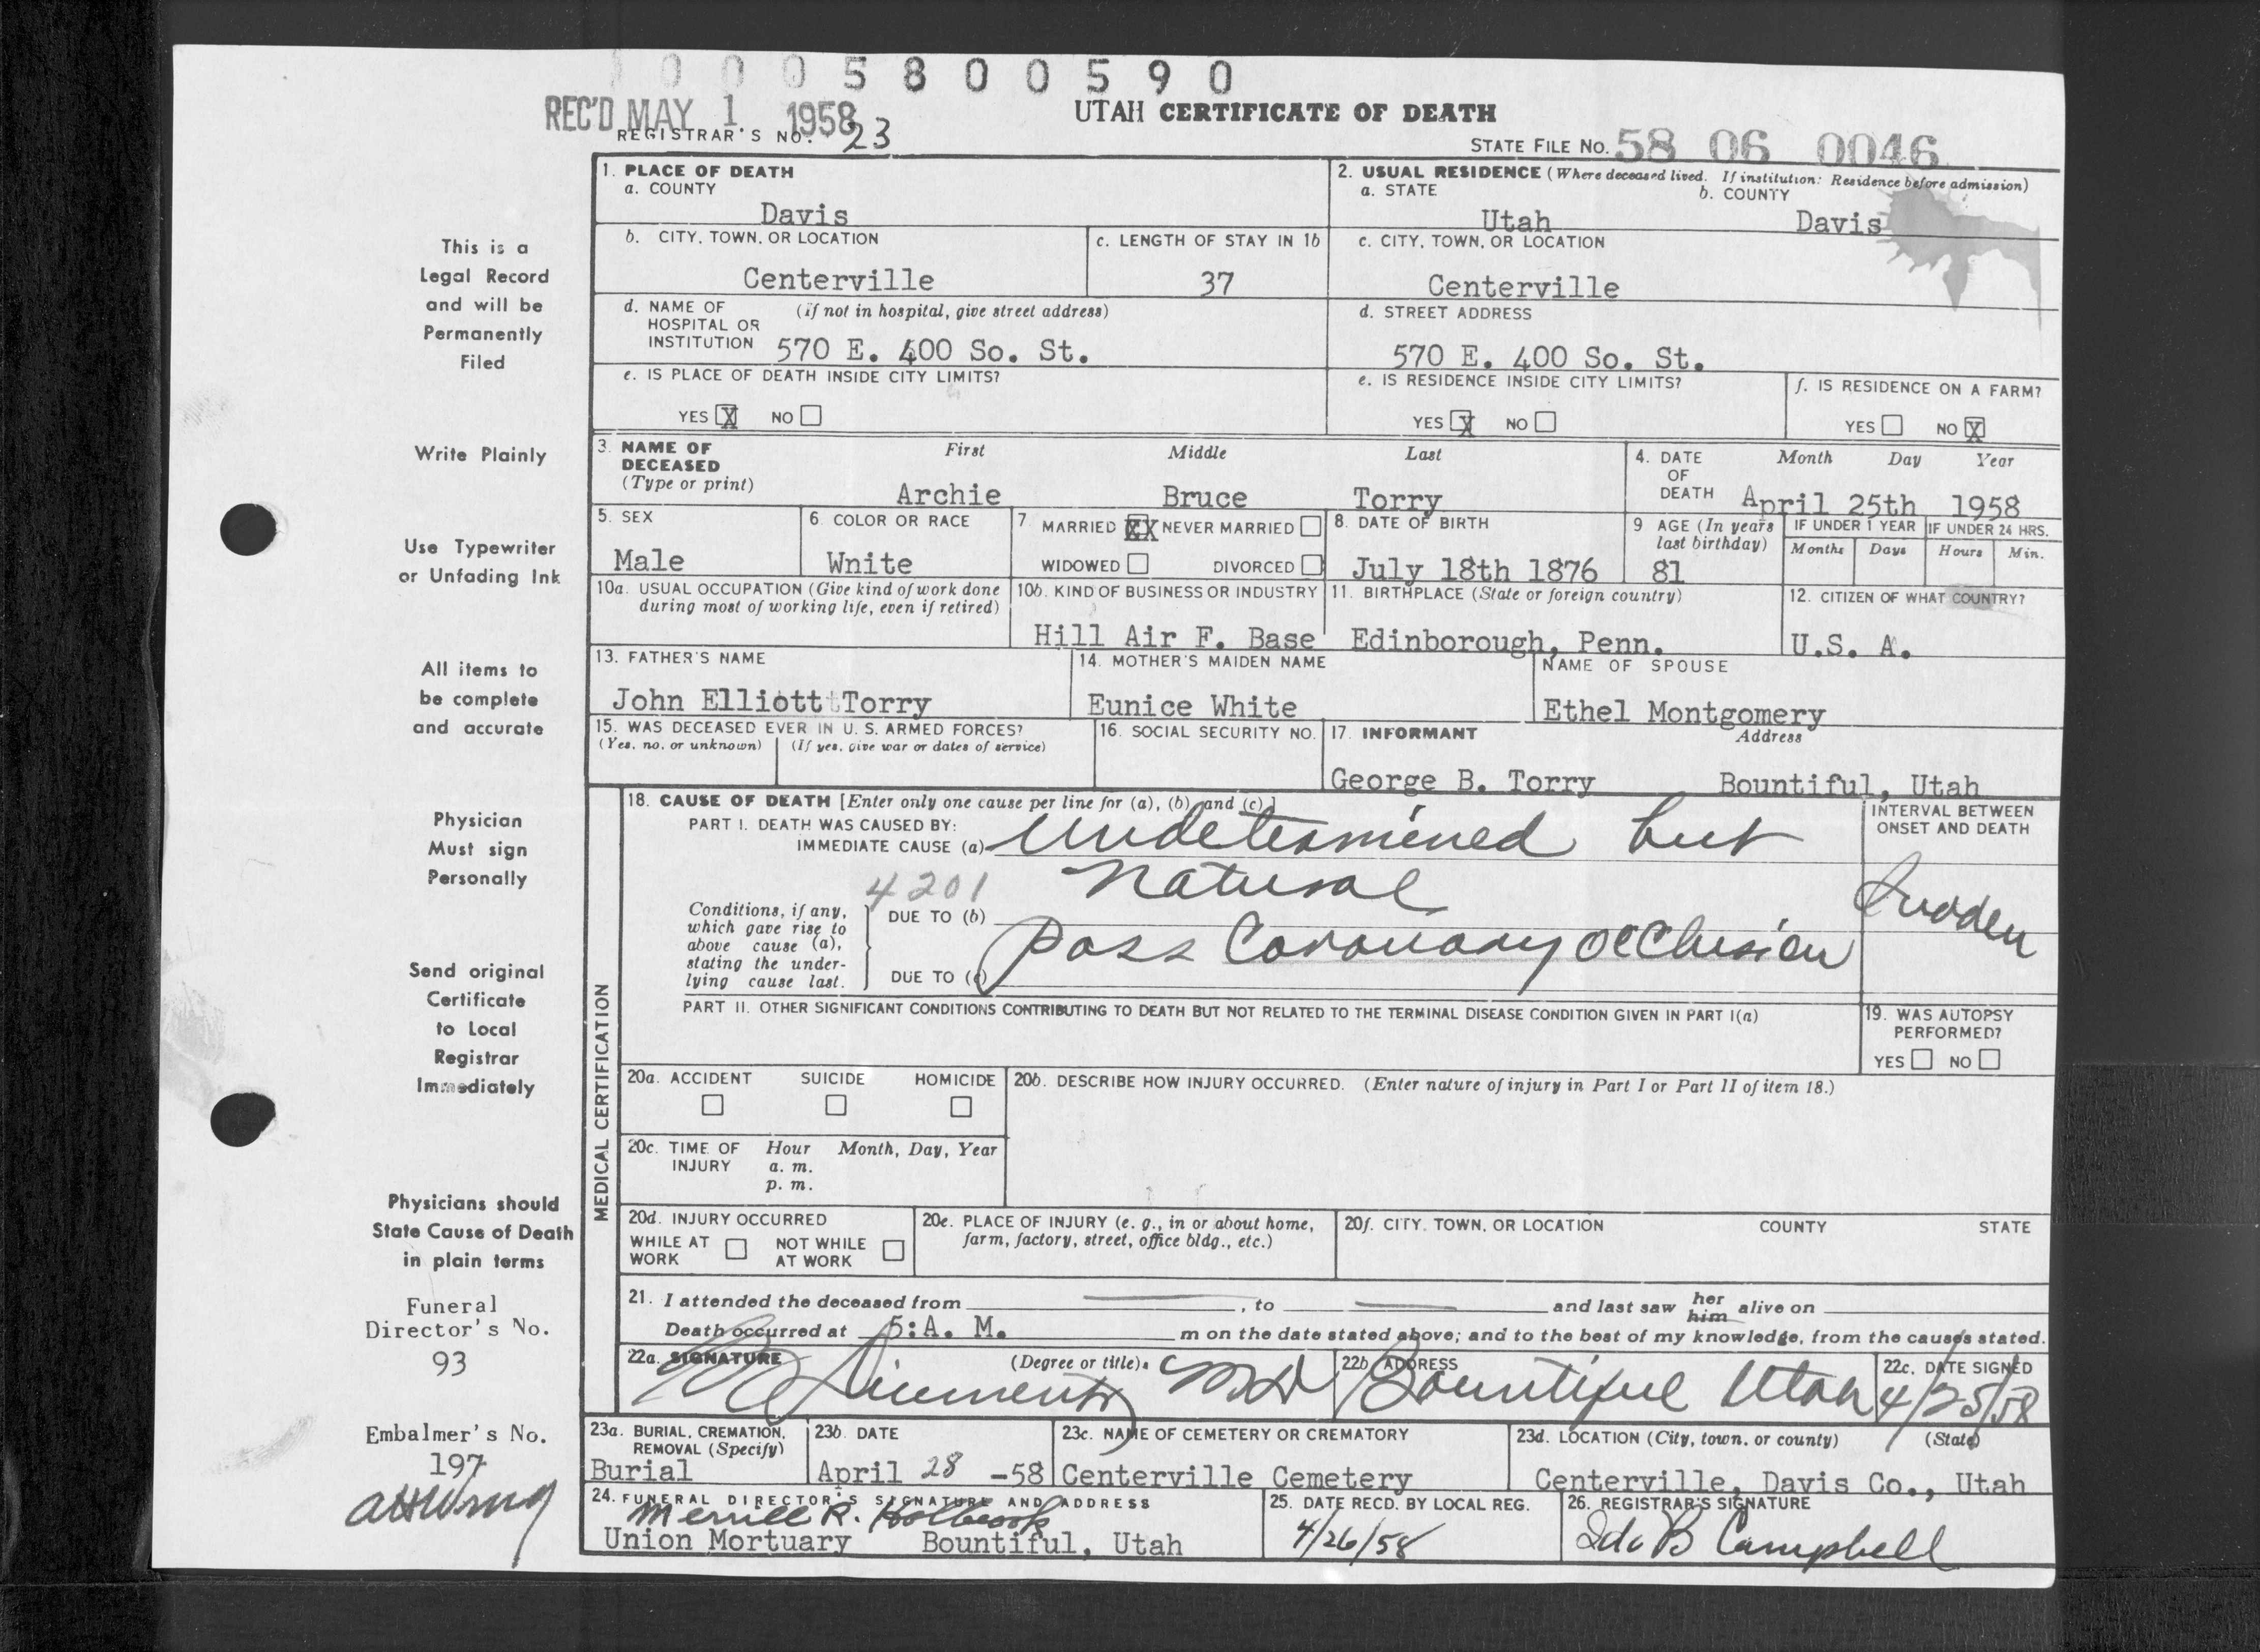 0005800590
REC'D MAY 1 1958
UTAH CERTIFICATE OF DEATH
REGISTRAR'S NO. 23
STATE FILE No. 58 06 0046
This is a
Legal Record
and will be
Permanently
Filed
Write Plainly
Use Typewriter
or Unfading Ink
All items to
be complete
and accurate
Physician
Must sign
Personally
Send original
Certificate
to Local
Registrar
Immediately
Physicians should
State Cause of Death
in plain terms
Funeral
Director's No.
93
Embalmer's No.
197
1. PLACE OF DEATH
a. COUNTY
Davis
2. USUAL RESIDENCE (Where deceased lived. If institution: Residence before admission)
a. STATE b. COUNTY
Utah Davis
b. CITY, TOWN, OR LOCATION
Centerville
c. LENGTH OF STAY IN 1b
37
c. CITY, TOWN, OR LOCATION
Centerville
d. NAME OF (if not in hospital, give street address)
HOSPITAL OR
INSTITUTION 570 E. 400 So. St.
d. STREET ADDRESS
570 E. 400 So. St.
e. IS PLACE OF DEATH INSIDE CITY LIMITS?
YES X NO
e. IS RESIDENCE INSIDE CITY LIMITS?
YES X NO
f. IS RESIDENCE ON A FARM?
YES NO X
3. NAME OF DECEASED (Type or print)
First Middle Last
Archie Bruce Torry
4. DATE OF DEATH
Month Day Year
April 25th 1958
5. SEX
Male
6. COLOR OR RACE
Wnite
7 MARRIED XX NEVER MARRIED
WIDOWED DIVORCED
8. DATE OF BIRTH
July 18th 1876
9 AGE (In years last birthday)
81
IF UNDER 1 YEAR
Months Days
IF UNDER 24 HRS.
Hours Min.
10a. USUAL OCCUPATION (Give kind of work done
during most of working life, even if retired)
10b. KIND OF BUSINESS OR INDUSTRY
Hill Air F. Base
11. BIRTHPLACE (State or foreign country)
Edinborough, Penn.
12. CITIZEN OF WHAT COUNTRY?
U.S. A.
13. FATHER'S NAME
John Elliott Torry
14. MOTHER'S MAIDEN NAME
Eunice White
NAME OF SPOUSE
Ethel Montgomery
15. WAS DECEASED EVER IN U. S. ARMED FORCES?
(Yes, no, or unknown) (If yes, give war or dates of service)
16. SOCIAL SECURITY NO.
17. INFORMANT Address
George B. Torry Bountiful, Utah
MEDICAL CERTIFICATION
18. CAUSE OF DEATH [Enter only one cause per line for (a), (b) and (c).]
PART I. DEATH WAS CAUSED BY:
IMMEDIATE CAUSE (a) Undetermined but
4201 Natural
Conditions, if any,
which gave rise to
above cause (a),
stating the under-
lying cause last.
DUE TO (b)
Poss Coronary occlusion
DUE TO (c)
INTERVAL BETWEEN
ONSET AND DEATH
Sudden
PART II. OTHER SIGNIFICANT CONDITIONS CONTRIBUTING TO DEATH BUT NOT RELATED TO THE TERMINAL DISEASE CONDITION GIVEN IN PART I(a)
19. WAS AUTOPSY
PERFORMED?
YES NO
20a. ACCIDENT SUICIDE HOMICIDE
20b. DESCRIBE HOW INJURY OCCURRED. (Enter nature of injury in Part I or Part II of item 18.)
20c. TIME OF INJURY
Hour Month, Day, Year
a. m.
p. m.
20d. INJURY OCCURRED
WHILE AT WORK NOT WHILE AT WORK
20e. PLACE OF INJURY (e. g., in or about home,
farm, factory, street, office bldg., etc.)
20f. CITY, TOWN, OR LOCATION COUNTY STATE
21. I attended the deceased from , to and last saw her him alive on
Death occurred at 5:A. M. m on the date stated above; and to the best of my knowledge, from the causes stated.
22a. SIGNATURE (Degree or title)
MD
22b ADDRESS
Bountiful Utah
22c. DATE SIGNED
4/25/58
23a. BURIAL, CREMATION,
REMOVAL (Specify)
Burial
23b. DATE
April 28 -58
23c. NAME OF CEMETERY OR CREMATORY
Centerville Cemetery
23d. LOCATION (City, town, or county) (State)
Centerville, Davis Co., Utah
24. FUNERAL DIRECTOR'S SIGNATURE AND ADDRESS
Merrill R. Holbrook
Union Mortuary Bountiful, Utah
25. DATE RECD. BY LOCAL REG.
4/26/58
26. REGISTRAR'S SIGNATURE
Ida B Campbell